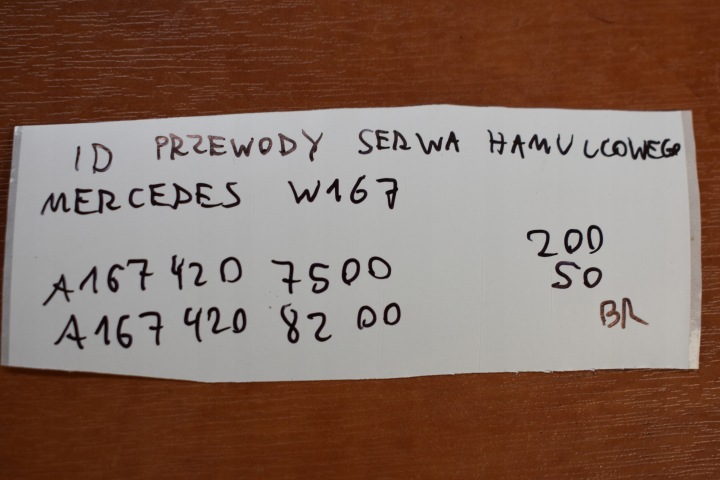 ID PRZEWODY SERWA HAMULCOWEGO
MERCEDES W167
200
A167 420 7500
50
A167 420 82 00
BR